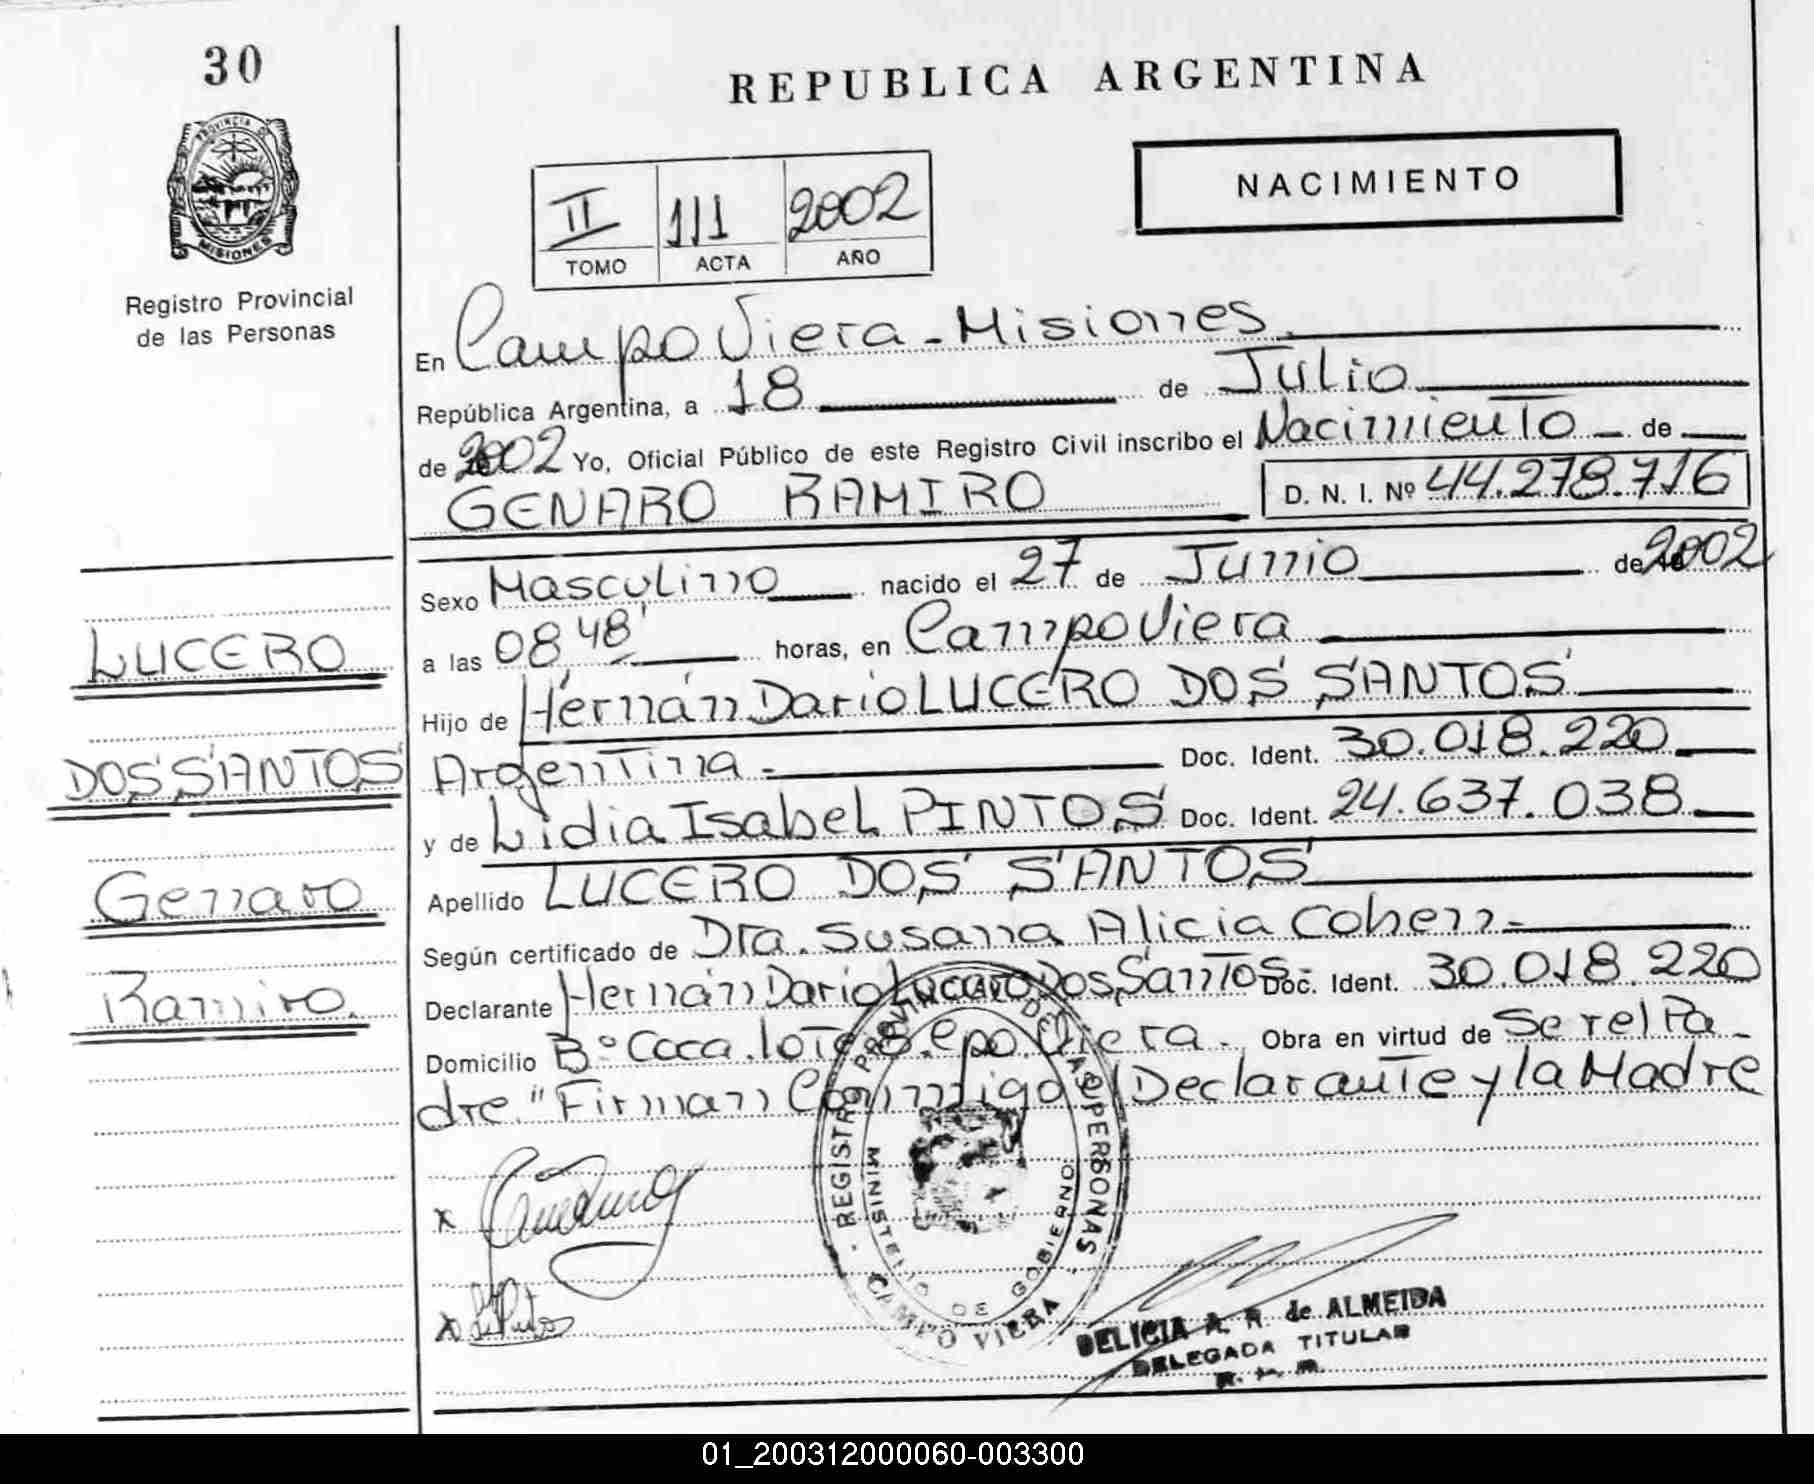 30
PROVINCIA DE
MISIONES
Registro Provincial
de las Personas
LUCERO
DOS SANTOS
Genaro
Ramiro.
REPUBLICA ARGENTINA
NACIMIENTO
II 111 2002
TOMO ACTA AÑO
En Campo Viera - Misiones.
República Argentina, a 18 de Julio
de 2002 Yo, Oficial Público de este Registro Civil inscribo el Nacimiento - de
GENARO RAMIRO D. N. I. Nº 44.278.716
Sexo Masculino nacido el 27 de Junio de 2002
a las 08 48' horas, en Campo Viera
Hijo de Hernán Dario LUCERO DOS SANTOS
Argentina - Doc. Ident. 30.018.220
y de Lidia Isabel PINTOS Doc. Ident. 24.637.038
Apellido LUCERO DOS SANTOS
Según certificado de Dra. Susana Alicia Cohen -
Declarante Hernán Dario Lucero Dos Santos - Doc. Ident. 30.018.220
Domicilio Bº Coca. lote 8. cpo. Viera. Obra en virtud de Ser el Pa-
dre." Firman Conmigo el Declarante y la Madre
x
x
REGISTRO PROVINCIAL DE LAS PERSONAS
MINISTERIO DE GOBIERNO
CAMPO VIERA
DELICIA A. R. de ALMEIDA
DELEGADA TITULAR
01_200312000060-003300